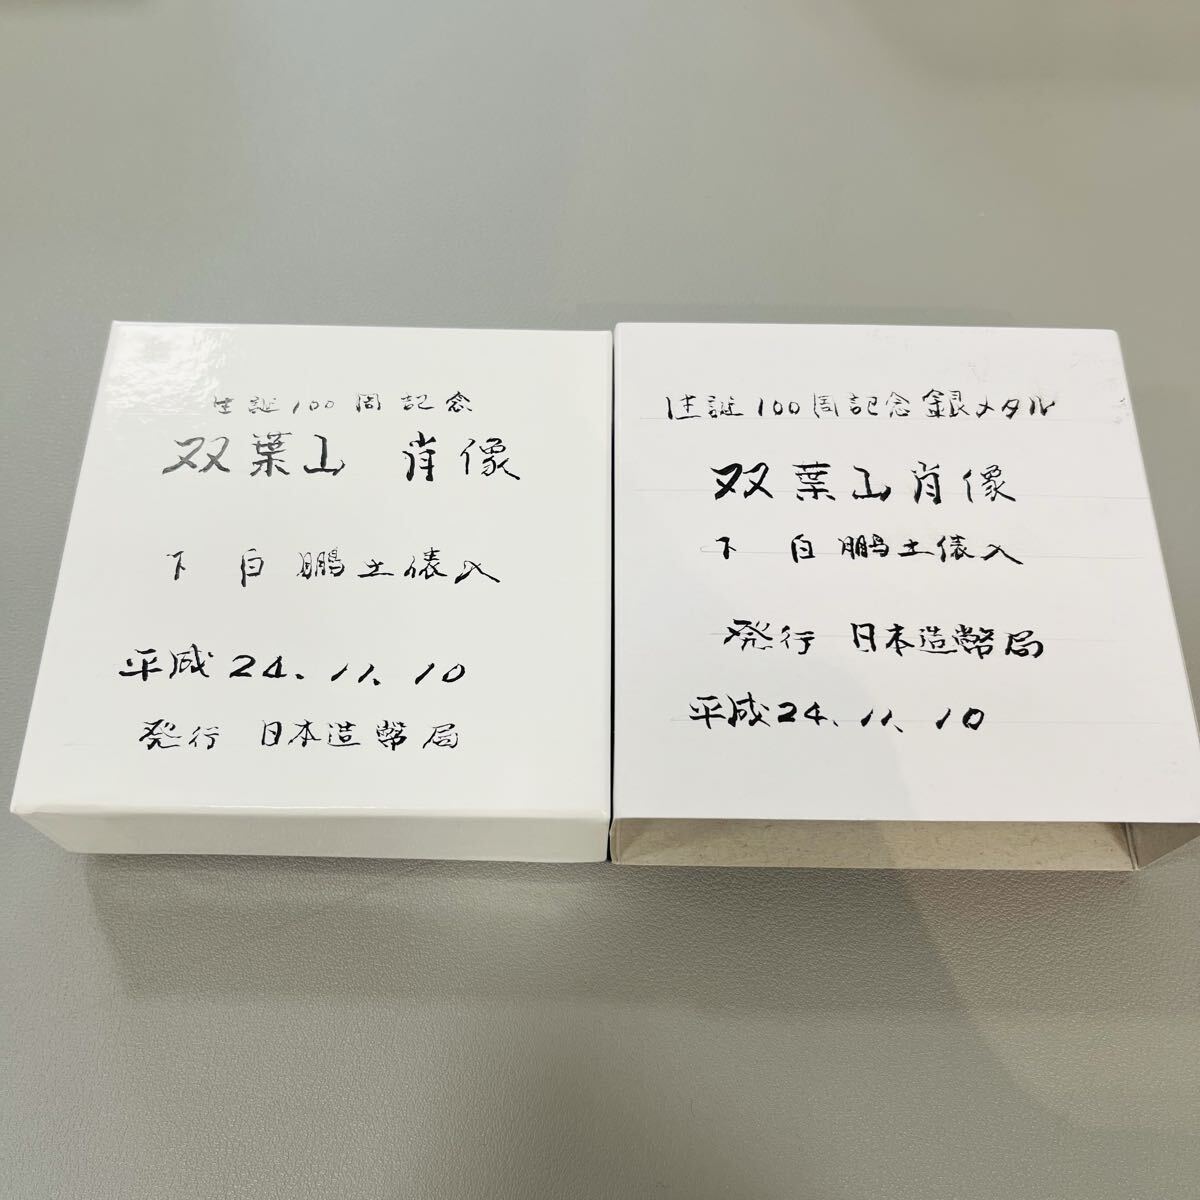 生誕100周記念
双葉山 肖像
下 白鵬土俵入
平成24.11.10
発行 日本造幣局
生誕100周記念銀メタル
双葉山肖像
下 白鵬土俵入
発行 日本造幣局
平成24.11.10